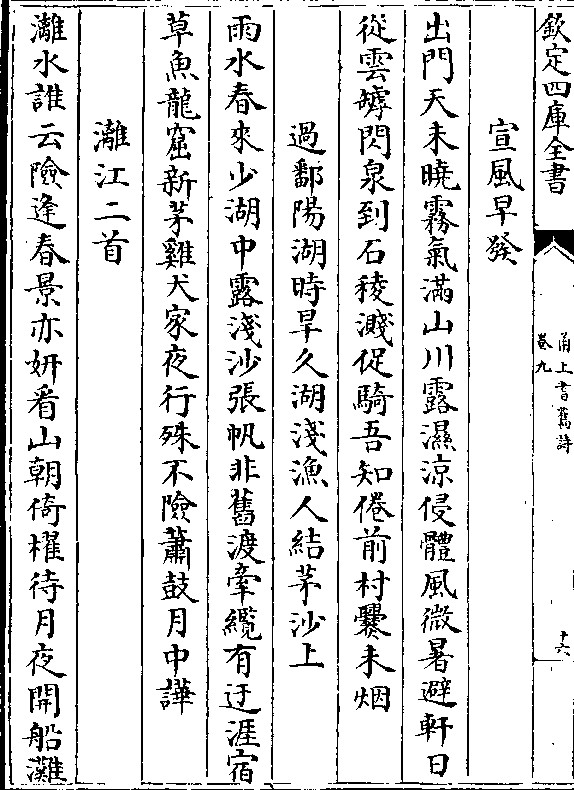 欽定四庫全書
甬上耆舊詩
卷九
十六
宣風早發
出門天未曉霧氣滿山川露濕涼侵體風微暑避軒日
從雲罅閃泉到石稜濺促騎吾知倦前村爨未烟
過鄱陽湖時旱久湖淺漁人結茅沙上
雨水春來少湖中露淺沙張帆非舊渡牽纜有迂涯宿
草魚龍窟新茅雞犬家夜行殊不險蕭鼓月中譁
灕江二首
灕水誰云險逢春景亦妍看山朝倚櫂待月夜開船灘